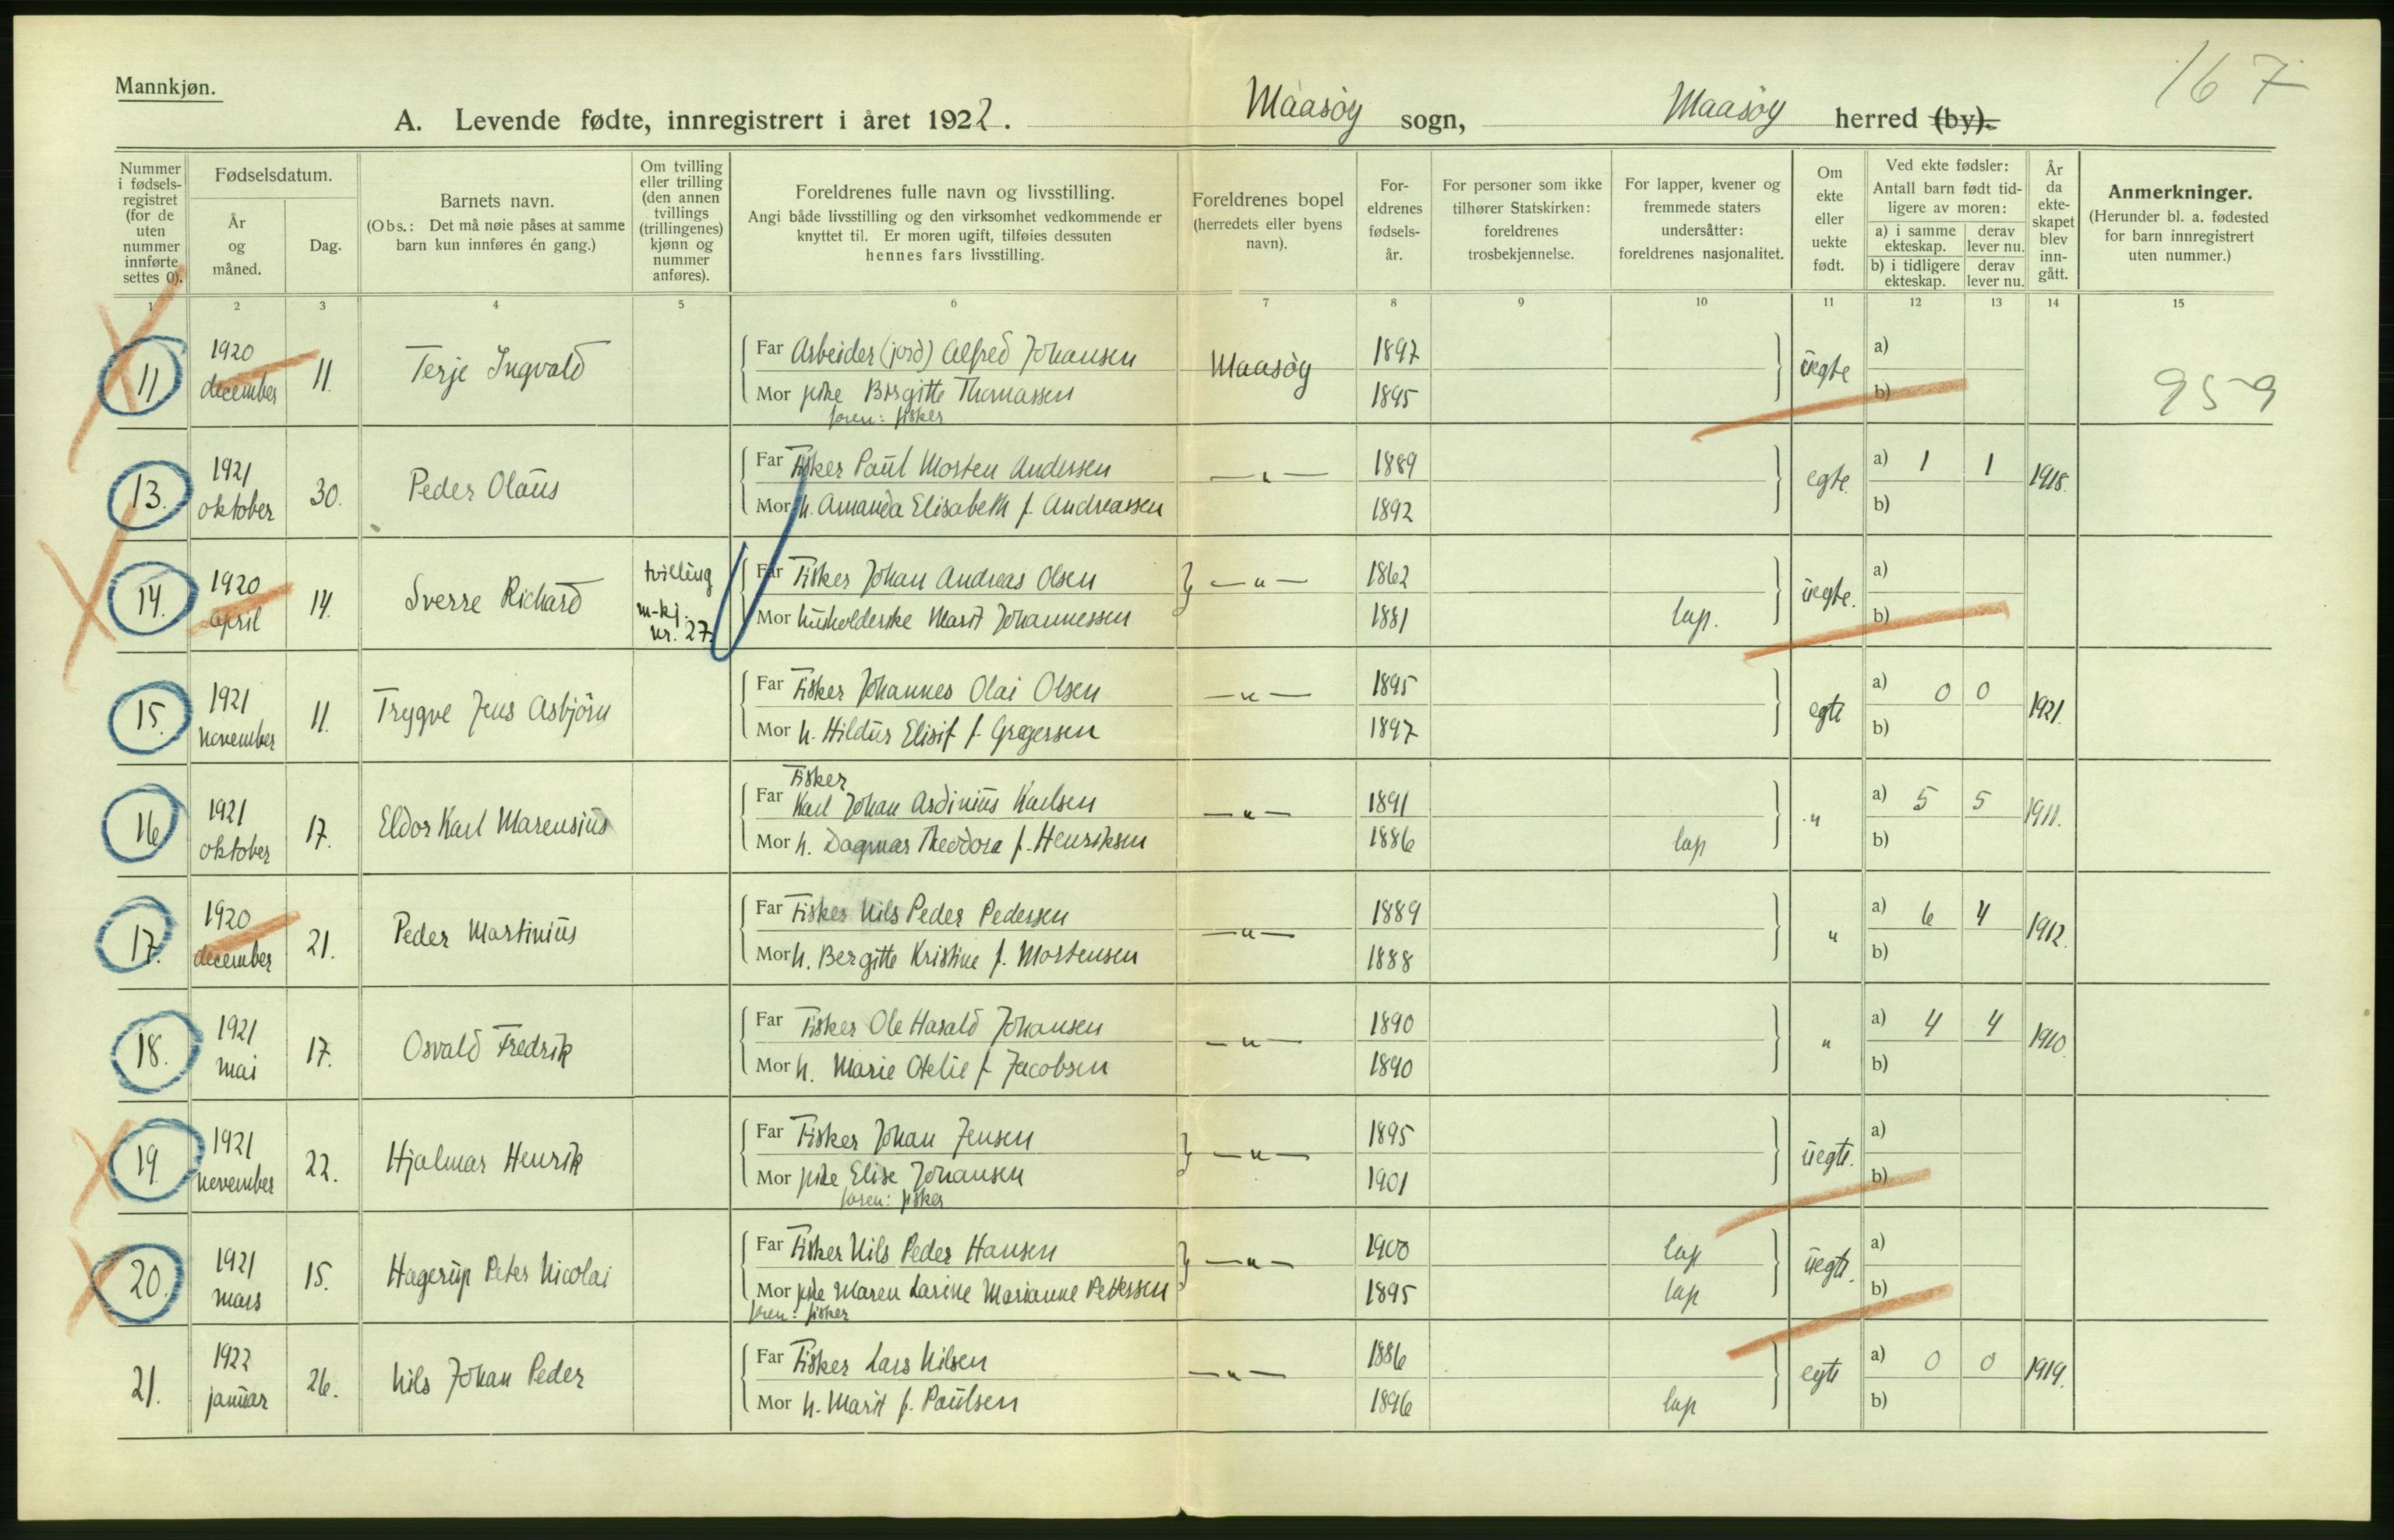 167
Mannkjøn.
A. Levende fødte, innregistrert i året 1922. Maasøy sogn, Maasøy herred (by).
Nummer i fødsels-registret (for de uten nummer innførte settes 0).
Fødselsdatum.
År og måned.
Dag.
Barnets navn.
(Obs.: Det må nøie påses at samme barn kun innføres én gang.)
Om tvilling eller trilling (den annen tvillings (trillingenes) kjønn og nummer anføres).
Foreldrenes fulle navn og livsstilling.
Angi både livsstilling og den virksomhet vedkommende er knyttet til. Er moren ugift, tilføies dessuten hennes fars livsstilling.
Foreldrenes bopel
(herredets eller byens navn).
For-eldrenes fødsels-år.
For personer som ikke tilhører Statskirken: foreldrenes trosbekjennelse.
For lapper, kvener og fremmede staters undersåtter: foreldrenes nasjonalitet.
Om ekte eller uekte født.
Ved ekte fødsler:
Antall barn født tid-ligere av moren:
a) i samme ekteskap. derav lever nu.
b) i tidligere ekteskap. derav lever nu.
År da ekte-skapet blev inn-gått.
Anmerkninger.
(Herunder bl. a. fødested for barn innregistrert uten nummer.)
1 2 3 4 5 6 7 8 9 10 11 12 13 14 15
11 1920 december 11. Terje Ingvald
Far Arbeider (jord) Alfred Johansen Maasøy 1897 üegte a)
Mor pike Birgitte Thomassen 1895 b)
foren: fisker
959
13. 1921 oktober 30. Peder Olaüs
Far Fisker Paül Morten Andersen — " — 1889 egte. a) 1 1 1918.
Mor h. Amanda Elisabeth f. Andreassen 1892 b)
14. 1920 april 14. Sverre Richard tvilling m-kj. nr. 27.
Far Fisker Johan Andreas Olsen — " — 1862 üegte. a)
Mor hüsholderske Marit Johannessen 1881 lap. b)
15. 1921 november 11. Trygve Jens Asbjörn
Far Fisker Johannes Olai Olsen — " — 1895 egte a) 0 0 1921.
Mor h. Hildür Elisif f. Gregersen 1897 b)
16 1921 oktober 17. Eldor Karl Marensiüs
Fisker
Far Karl Johan Ardiniüs Karlsen — " — 1891 " a) 5 5 1911.
Mor h. Dagmar Theodora f. Henriksen 1886 lap b)
17. 1920 december 21. Peder Martiniüs
Far Fisker Nils Peder Pedersen — " — 1889 " a) 6 4 1912.
Mor h. Bergitte Kristine f. Mortensen 1888 b)
18. 1921 mai 17. Osvald Fredrik
Far Fisker Ole Harald Johansen — " — 1890 " a) 4 4 1910.
Mor h. Marie Otelie f. Jacobsen 1890 b)
19. 1921 november 22. Hjalmar Henrik
Far Fisker Johan Jensen — " — 1895 üegte. a)
Mor pike Elise Johansen 1901 b)
foren: fisker
20. 1921 mars 15. Hagerüp Peter Nicolai
Far Fisker Nils Peder Hansen — " — 1900 lap üegte. a)
Mor pike Maren Larine Marianne Pettersen 1895 lap b)
foren: fisker
21. 1922 janüar 26. Nils Johan Peder
Far Fisker Lars Nilsen — " — 1886 egte a) 0 0 1919.
Mor h. Marit f. Paülsen 1896 lap b)